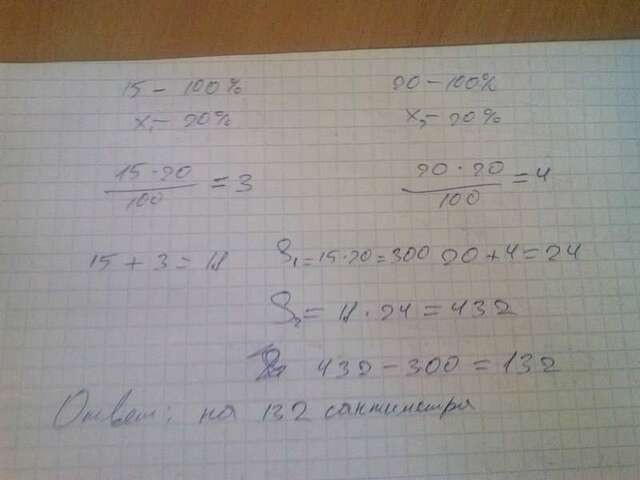 15 - 100% 20 - 100%
x₁ - 20% x₂ - 20%
15 · 20 / 100 = 3 20 · 20 / 100 = 4
15 + 3 = 18 S₁ = 15 · 20 = 300 20 + 4 = 24
S₂ = 18 · 24 = 432
432 - 300 = 132
Ответ: на 132 сантиметра